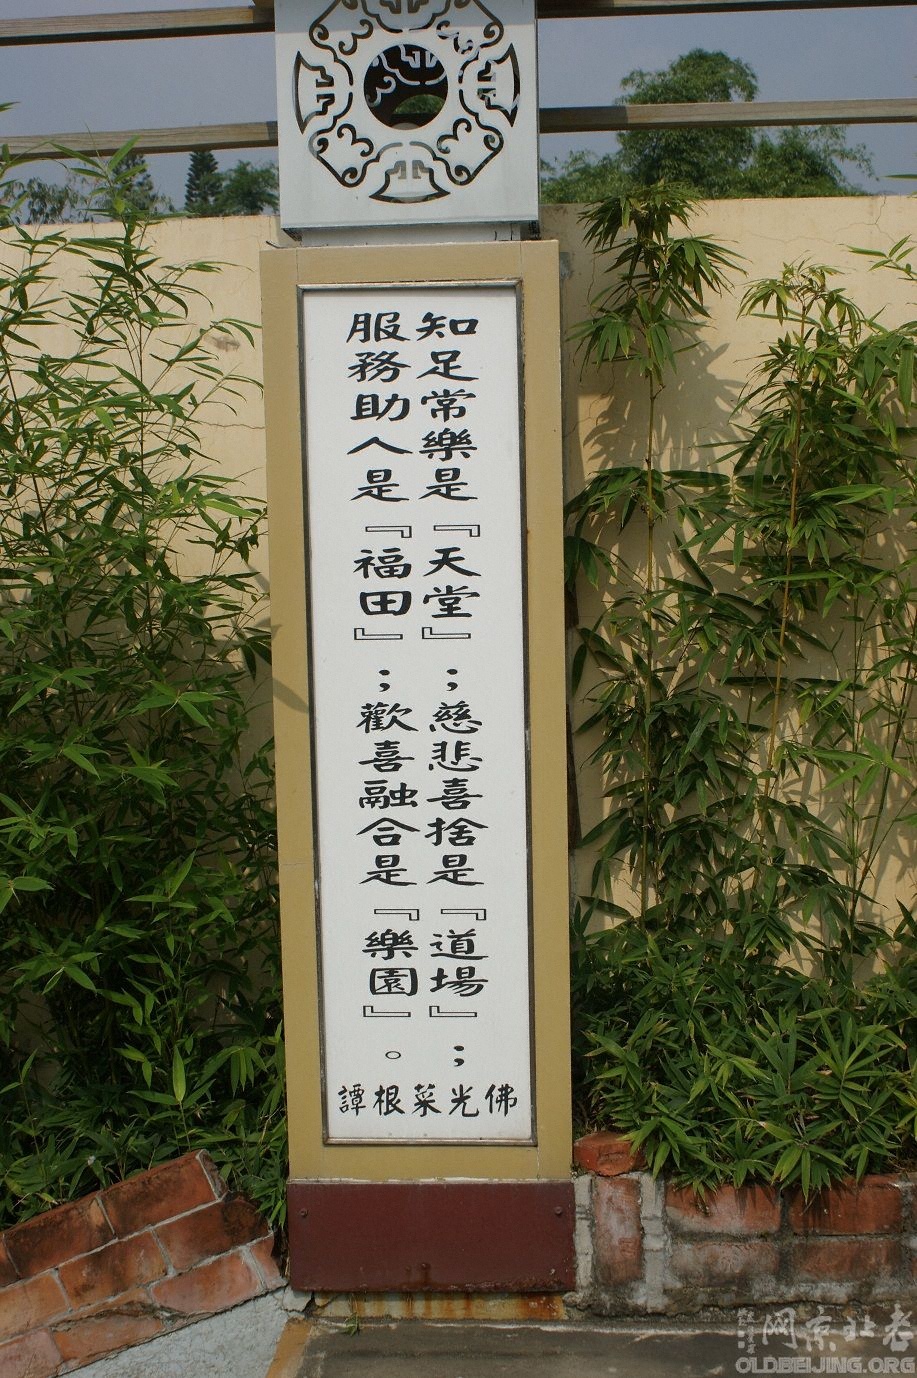 知足常樂是『天堂』;慈悲喜捨是『道場』;
服務助人是『福田』;歡喜融合是『樂園』。
佛光菜根譚
老北京网
OLDBEIJING.ORG